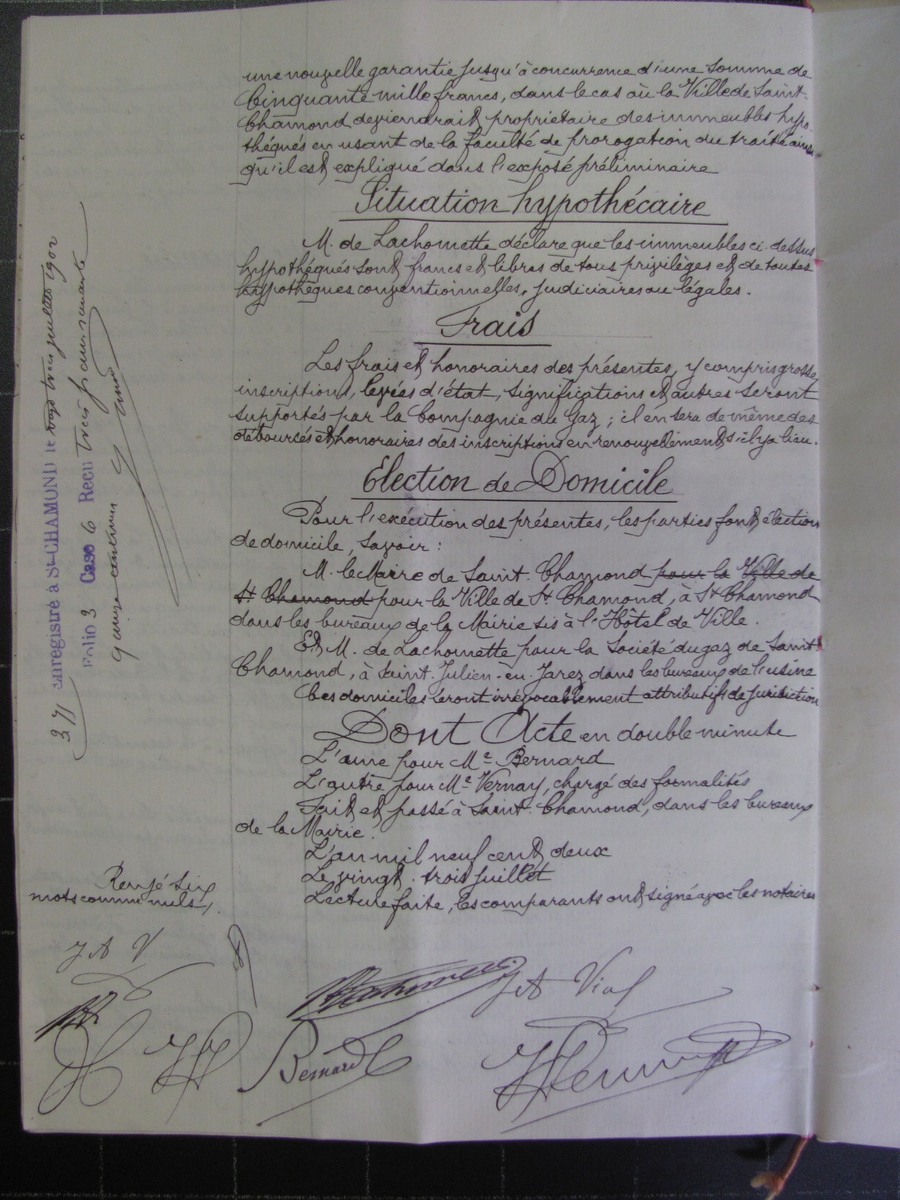 une nouvelle garantie jusqu'à concurrence d'une somme de
Cinquante mille francs, dans le cas où la Ville de Saint-
Chamond deviendrait propriétaire des immeubles hypo-
théqués en usant de la faculté de prorogation du traité ainsi
qu'il est expliqué dans l'exposé préliminaire
Situation hypothécaire
M. de Lachomette déclare que les immeubles ci-dessus
hypothéqués sont francs et libres de tous privilèges et de toutes
hypothèques conventionnelles, judiciaires ou légales.
Frais
Les frais et honoraires des présentes, y compris grosse,
inscriptions, levées d'état, significations et autres seront
supportés par la Compagnie du Gaz ; il en sera de même des
déboursés et honoraires des inscriptions en renouvellement s'il y a lieu.
Election de Domicile
Pour l'exécution des présentes, les parties font élection
de domicile, savoir :
M. le Maire de Saint-Chamond pour la Ville de
St Chamond pour la Ville de St Chamond, à St Chamond
dans les bureaux de la Mairie sis à l'Hôtel de Ville.
Et M. de Lachomette pour la Société du gaz de Saint-
Chamond, à Saint-Julien-en-Jarez dans les bureaux de l'usine
Ces domiciles seront irrévocablement attributifs de juridiction
Dont Acte en double minute
L'une pour Me Bernard
L'autre pour Me Vernay, chargé des formalités
Fait et passé à Saint-Chamond, dans les bureaux
de la Mairie.
L'an mil neuf cent deux
Le vingt-trois juillet
Lecture faite, les comparants ont signé avec les notaires
Rayé six
mots comme nuls,
J A V
J A Vial
Bernard
371 Enregistré à St-CHAMOND le vingt trois juillet 1902
Folio 3 Case 6 Reçu Trois francs
quinze centimes